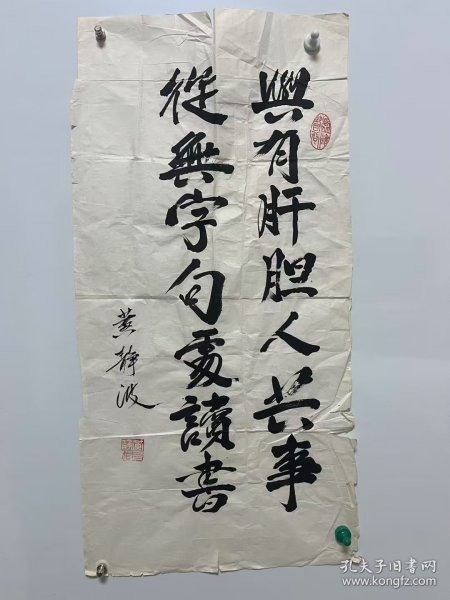 與有肝胆人共事
從無字句處讀書
黄静波
孔夫子旧书网
www.kongfz.com